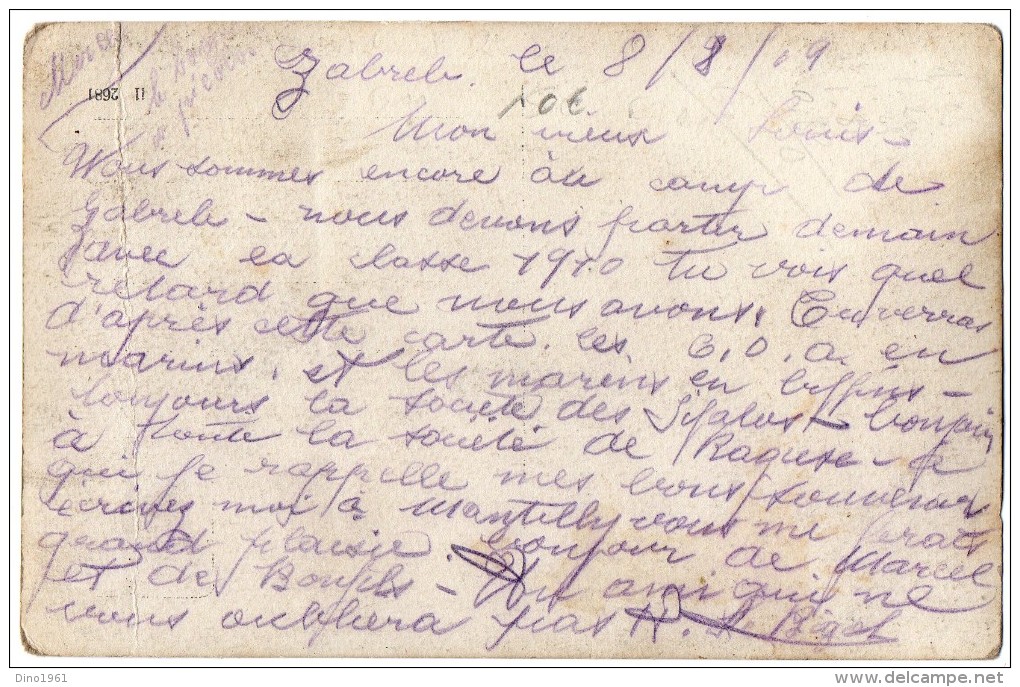 Zabreb. le 8/8/19
11 2681
Mon vieux Louis -
Nous sommes encore au camp de
Zabreb - nous devons partir demain
avec la classe 1910 tu vois quel
retard que nous avons. Tu verras
d'après cette carte. les C.O.A. en
marins. et les marins en biffins -
toujours la société des - bonjour
à toute la société de Raguse - à
qui je rappelle mes bons souvenirs
écrivez moi à Mantilly vous me ferais
grand plaisir. bonjour de Marcel
et de Bonfils - Un ami qui ne
vous oubliera pas
Dino1961
delcampe.net